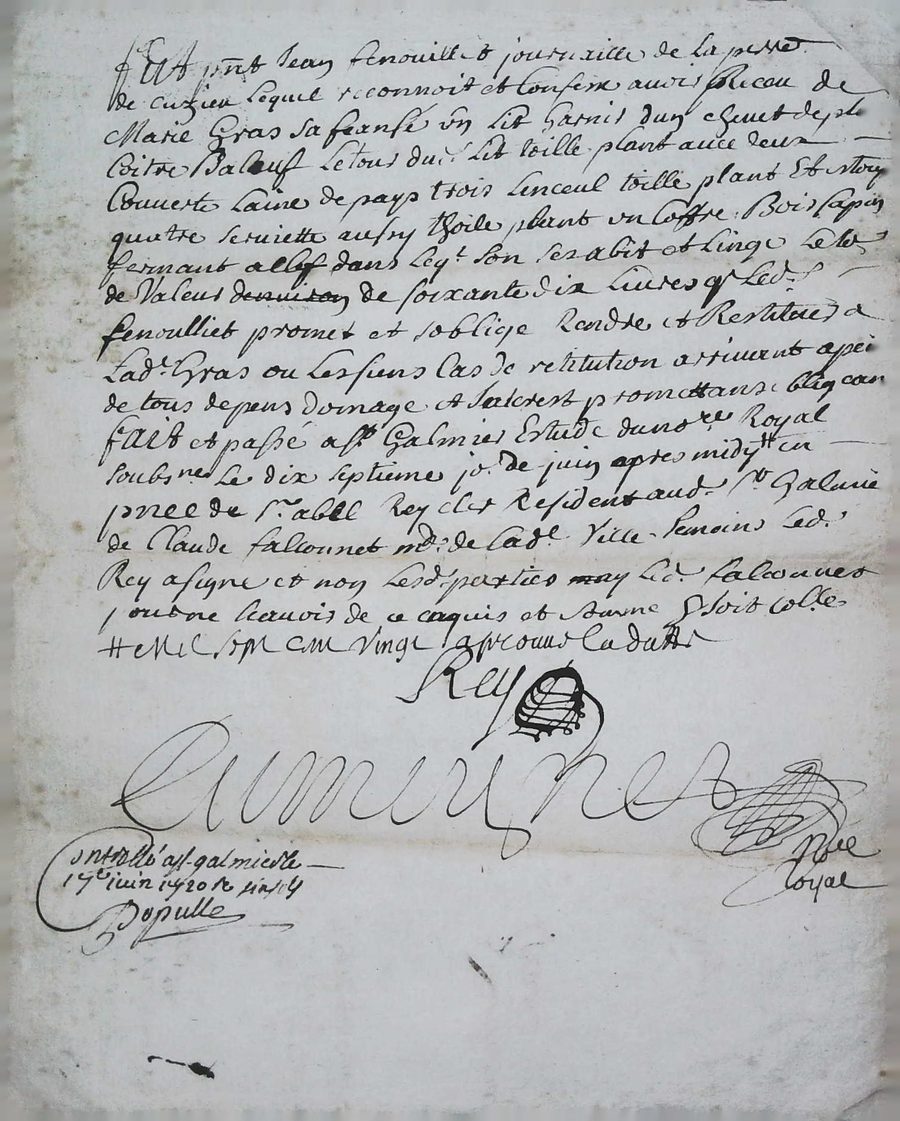 fut pnt Jean fenouilliet journallie de la parr
de cuzieu Lequel reconnoit et Confesse auoir Receu de
Marie Gras sa feansé un Lit Garnis dun cheuet de pl
Coitre Le tous du Lit toille plant auec deux
Couuerte Laine de pays trois Linceul toille plant Et
quatre seruiette aussy thoile plant un Coffre Bois sapin
fermant a clef dans Leqt son ses abit et Linge Le to
de Valeur de soixante dix Liures qs Led.
fenoulliet promet et soblige Rendre et Restituer a
Lad. Gras ou Les siens Cas de restitution arriuant a pei
de tous depens domage et Interest promettans oblig
fait et passé a st Galmier Estude du nore Royal
soubsne Le dix septieme jor de juin apres midy # en
pnce de sr abel Rey clerc Resident aud. st Galmie
de Claude falconnet md. de Lad. Ville temoins Led.
Rey a signe et non Lesd. parties ny Led. falconnet
pour ne scauoir de ce enquis et somme soit colle
# Mil sept cent vingt aprouue La datte
Rey
nore
Royal
Controllé a st galmier le
17e juin 1720 Re six sols
Populle